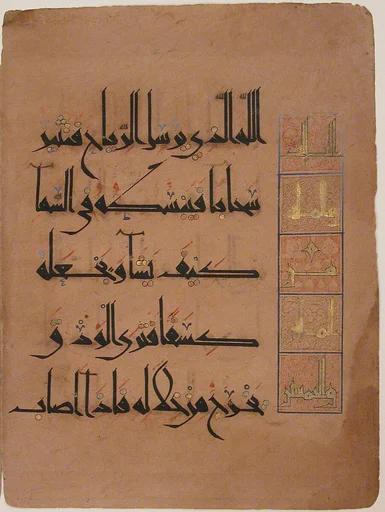 الله الذي يرسل الرياح فتثير
سحابا فيبسطه في السمآ
كيف يشآ ويجعله
كسفا فترى الودق
يخرج من خلاله فاذآ اصاب